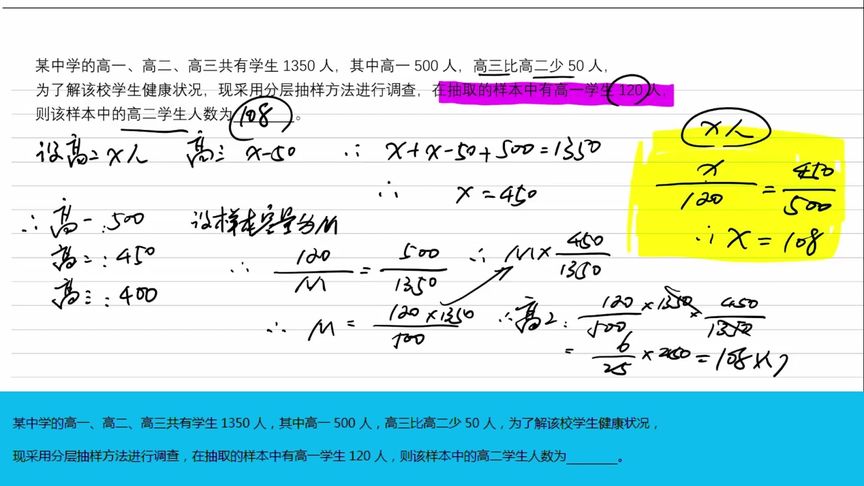 某中学的高一、高二、高三共有学生 1350 人，其中高一 500 人，高三比高二少 50 人，
为了解该校学生健康状况，现采用分层抽样方法进行调查，在抽取的样本中有高一学生 120 人，
则该样本中的高二学生人数为 108 。
x人
设高二x人 高三 x-50 ∴ x+x-50+500=1350
x/120 = 450/500
∴ x=450
∴ x=108
∴高一:500 设样本容量为M
高二:450 ∴ 120/M = 500/1350 ∴ M× 450/1350
高三:400
∴ M = 120×1350/500 ∴高2: 120/500 ×1350× 450/1350
= 6/25 ×450=108人
某中学的高一、高二、高三共有学生 1350 人，其中高一 500 人，高三比高二少 50 人，为了解该校学生健康状况，
现采用分层抽样方法进行调查，在抽取的样本中有高一学生 120 人，则该样本中的高二学生人数为________。